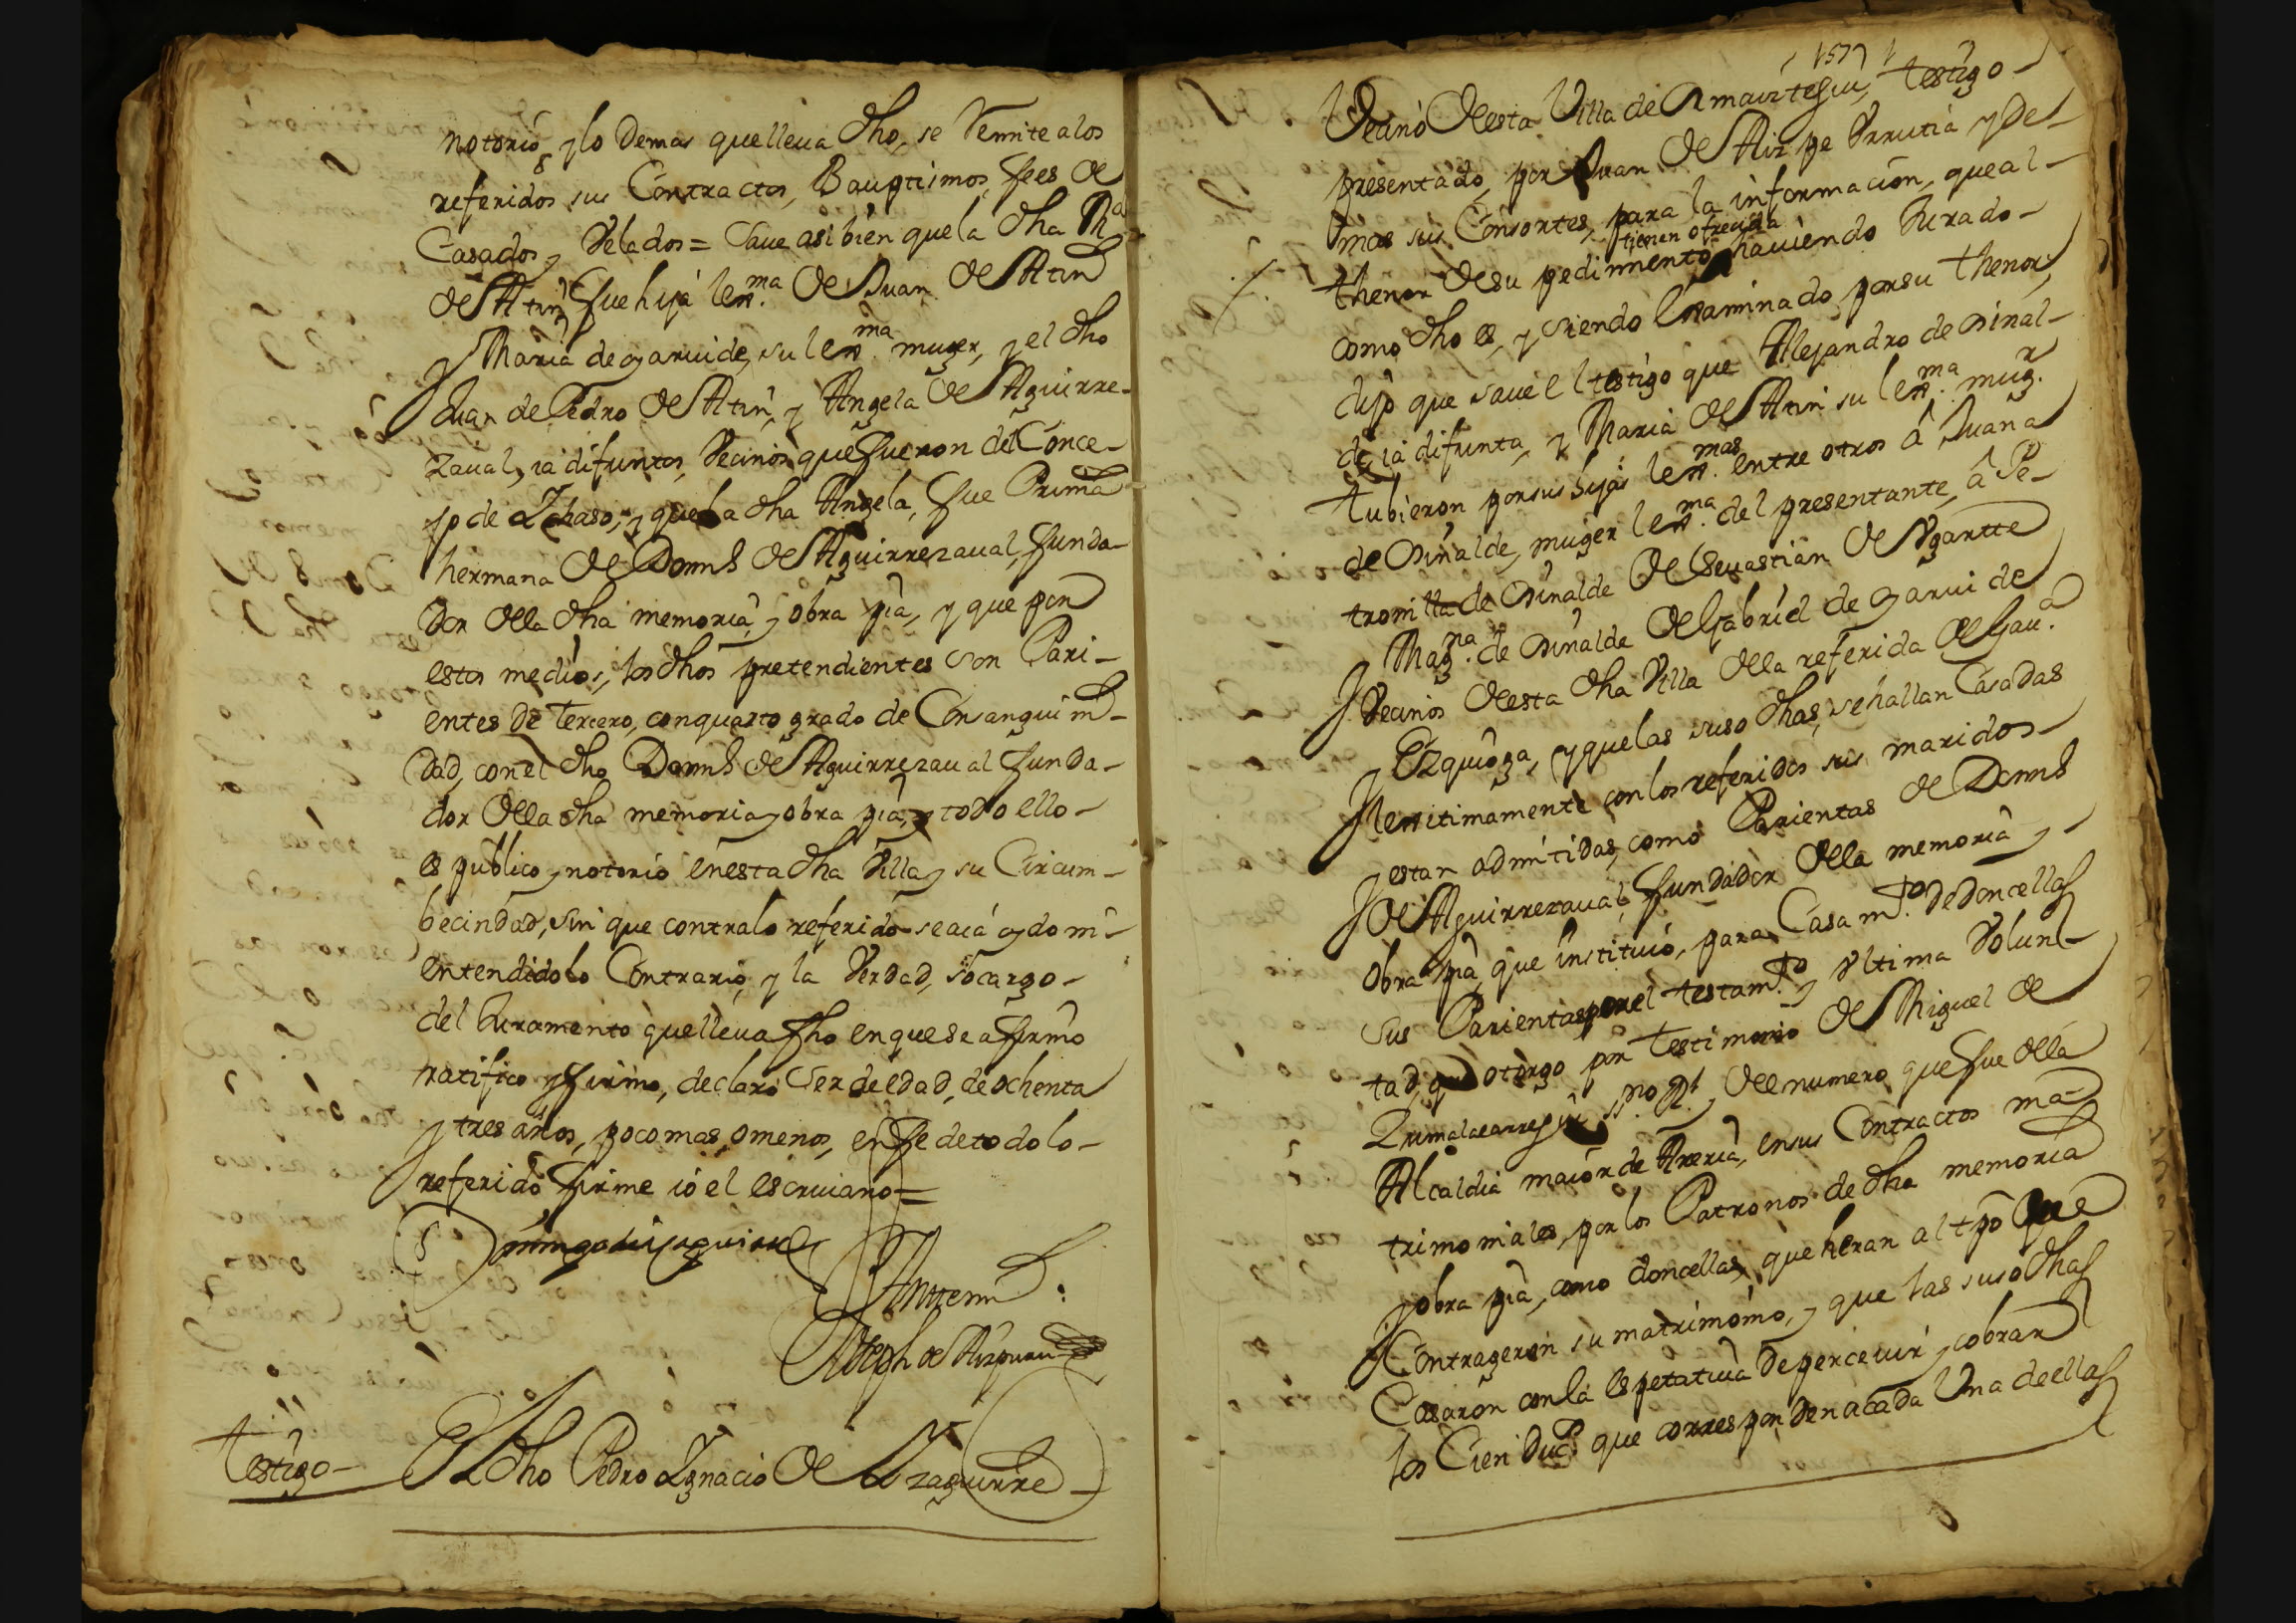 notorio, y lo demas que lleua dho, se Remite a los
referidos sus Contractos, Bauptismos, fees de
Casados, y Velados = Saue asi bien que la dha Mª
de Atin fue hija lex.ma de Juan de Atin
y Maria de Garuide, su lex.ma muger, y el dho
Juan de Pedro de Atin, y Angela de Aguirre-
zaual, ia difuntos, Vecinos que fueron del Conce-
jo de Ichaso, y que la dha Angela, fue Prima
hermana de Domᵒ de Aguirrezaual, funda-
dor della dha memoria, y obra pia, y que por
estos medios, los dhos pretendientes son Pari-
entes de tercero, con quarto grado de Consanguini-
dad, con el dho Domᵒ de Aguirrezaual funda-
dor della dha memoria y obra pia, y todo ello-
es publico y notorio en esta dha Villa y su Circum-
becindad, sin que contra lo referido se aia oydo ni-
entendido lo Contrario, y la Verdad, so cargo-
del Juramento que lleua fho en que se affirmo
ratifico y firmo, declaro ser de edad, de ochenta
y tres años, poco mas, o menos, en fe de todo lo-
referido firme io el escriuano =
Domingo de yraguirre
Ante mi
Joseph de Aizpuru
Testigo- El dho Pedro Ignacio de Yzaguirre-
157
Vecino desta Villa de Amauiztegui, testigo-
presentado, por Juan de Aizpe Vrrutia y de-
mas sus Consortes, para la informacion, que al-
tienen ofrecida
thenor de su pedimiento, hauiendo Jurado-
como dho es, y siendo Examinado por su thenor,
dijo que saue el testigo que Alejandro de Oinal-
de, ia difunta, y Maria de Atin su lex.ma mug.r
tubieron por sus hijas lex.mas entre otros â Juana
de Oinalde, muger lex.ma del presentante, â Pe-
tronilla de Oinalde de Seuastian de Vgartte
y Mag.na de Oinalde de Gabriel de Garuide
Vecinos desta dha Villa della referida de Gau.a
y Ezquioga, y que las suso dhas, se hallan Casadas
lexitimamente con los referidos sus maridos-
y estan admitidas, como Parientas de Domᵒ
de Aguirrezaual, fundador della memoria y-
obra pia, que instituio, para Casam.to de doncellas
sus Parientas por el testam.to y Vltima Volun-
tad, que otorgo por testimonio de Miguel de
Zumalacarregui s.no R.l del numero que fue della
Alcaldia maior de Areria, en sus Contractos ma-
trimoniales, por los Patronos de dha memoria
y obra pia, como doncellas, que heran al tpo que
Contrageron su matrimonio, y que las suso dhas
Casaron con la espetatiua de perceuir y cobrar
los Cien duc.s que corresponden a cada Vna de ellas